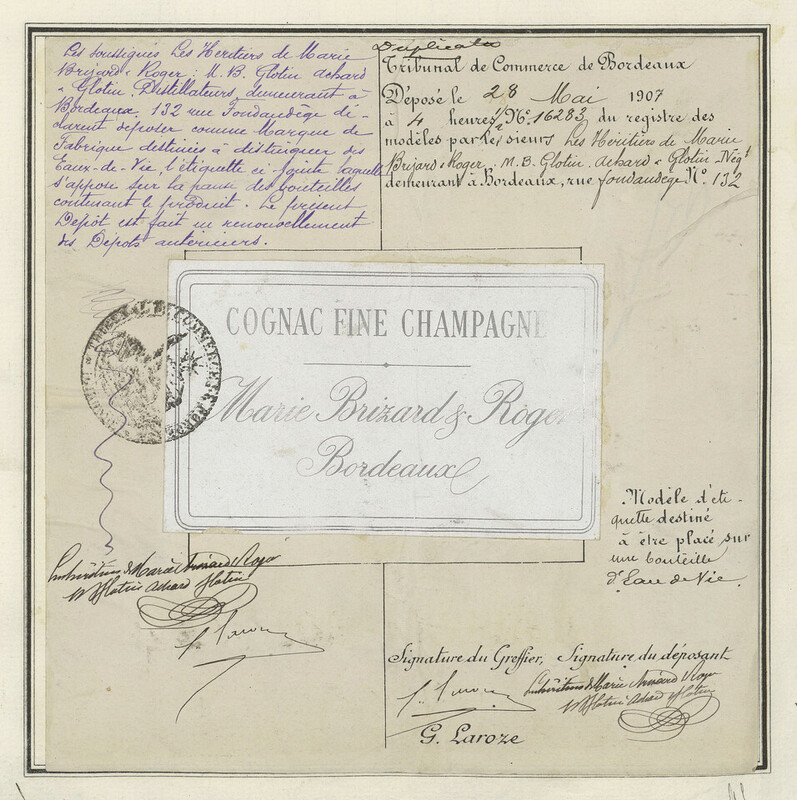 Les soussignés, Les Héritiers de Marie
Brizard & Roger : M. B. Glotin Achard
& Glotin, Distillateurs, demeurant à
Bordeaux, 132 rue Fondaudège dé-
clarent déposer comme Marque de
Fabrique destinée à distinguer des
Eaux-de-Vie, l'étiquette ci jointe laquelle
s'appose sur la panse des bouteilles
contenant le produit. Le présent
Dépôt est fait en renouvellement
des Dépôts antérieurs.
Duplicata
Tribunal de Commerce de Bordeaux
Déposé le 28 Mai 1907
à 4 heures 1/2 No. 16283, du registre des
modèles par les sieurs Les Héritiers de Marie
Brizard & Roger : M. B. Glotin, Achard & Glotin, Négts
demeurant à Bordeaux, rue fondaudège No. 132
COGNAC FINE CHAMPAGNE
Marie Brizard & Roger
Bordeaux
Modèle d'éti-
quette destiné
à être placé sur
une bouteille
d'Eau de Vie.
Les héritiers de Marie Brizard & Roger
M B Glotin Achard Glotin
G. Laroze
Signature du Greffier, Signature du déposant
Les héritiers de Marie Brizard & Roger
M B Glotin Achard Glotin
G. Laroze